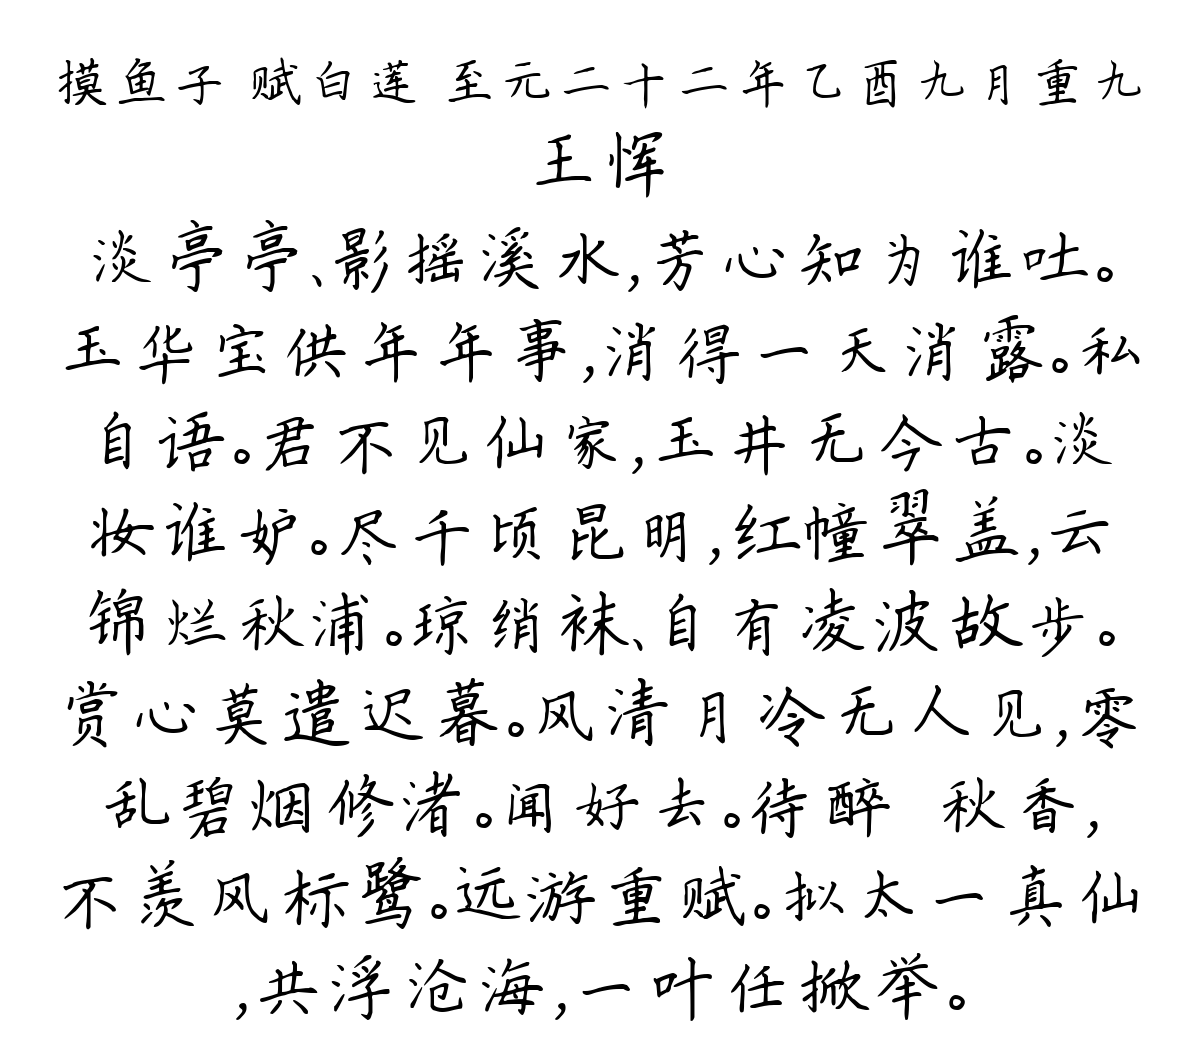 摸鱼子 赋白莲 至元二十二年乙酉九月重九
王恽
淡亭亭、影摇溪水,芳心知为谁吐。
玉华宝供年年事,消得一天消露。私
自语。君不见仙家,玉井无今古。淡
妆谁妒。尽千顷昆明,红幢翠盖,云
锦烂秋浦。琼绡袜、自有凌波故步。
赏心莫遣迟暮。风清月冷无人见,零
乱碧烟修渚。闻好去。待醉 秋香,
不羡风标鹭。远游重赋。拟太一真仙
,共浮沧海,一叶任掀举。